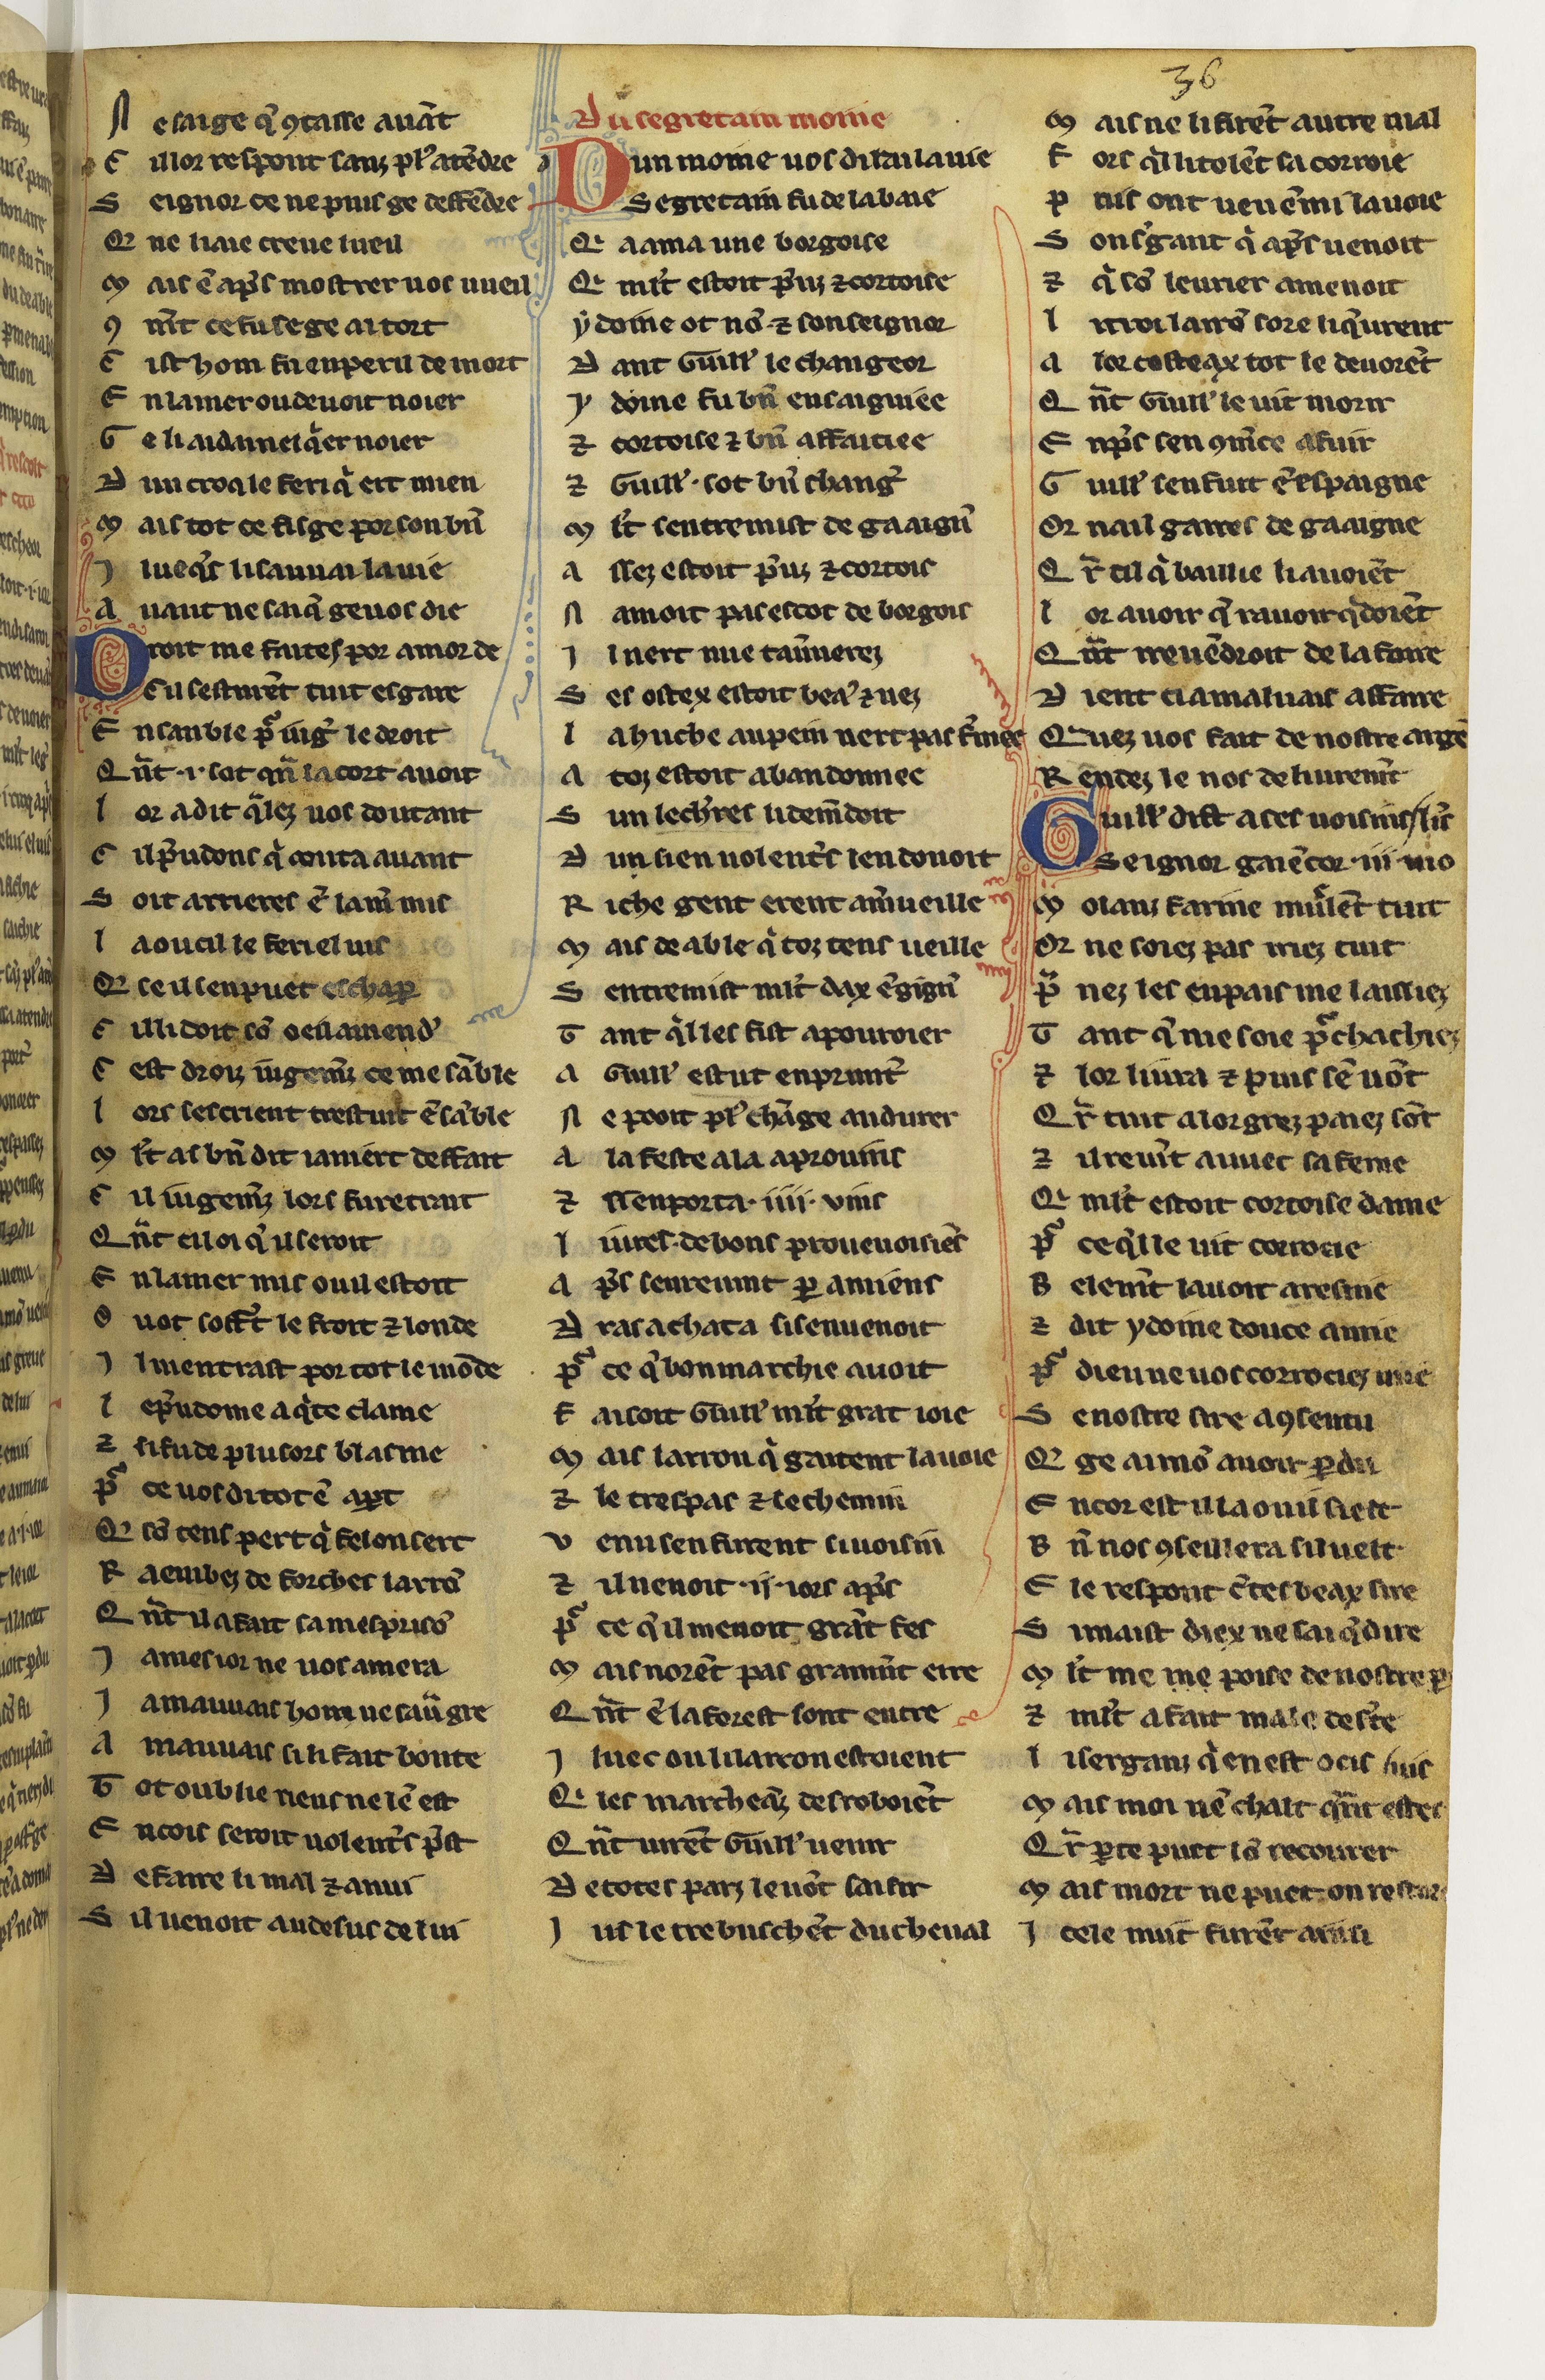 36
N e sai ge q̃ ꝯtasse auãt
C il lor respont sanz pl᷒ atẽdre
S eignor ce ne puis ge deffẽdre
Q̃ ne li aie creue lueil
M ais ẽ ap̃s mostrer uos uueil
ꝯ m̃t ce fu se ge ai tort
C ist hom fu en peril de mort
E n la mer ou deuoit noier
G e li aidai nel q̃er noier
D un croq le feri q̃ ert mien
M ais tot ce fis ge por son bñ
I lueq̃s li sauuai la uie
A uant ne sai q̃ ge uos die
D roit me faites por amor de
C il sesturẽt tuit esgare
E nsamble pͬ iug̃ le droit
Q ñt .i. sot qñ la cort auoit
L or a dit q̃lez uos doutant
C il p̃udons q̃ conta auant
S oit arrieres ẽ la m̃ mis
L a ou cil le feri el uis
Q̃ se il sen puet eschap̱
C il li doit sõ oeil amend̃
C est droiz iugem̃z ce me sãble
L ors sescrient trestuit ẽsãble
M l̃t as bñ dit ia niert deffait
C il iugem̃z lors fu retrait
Q ñt cil oi q̃ il seroit
E n la mer mis ou il estoit
O u ot soff̃t le froit ⁊ londe
I l ni entrast por tot le mõde
L e p̃udome a q̃te clame
⁊ si fu de plusors blasme
Pͬ ce uos di tot ẽ ap̱t
Q̃ sõ tens pert q̃ felon sert
R aembez de forches larrõ
Q ñt il a fait sa mesprisõ
I ames ior ne uos amera
I a mauuais hom ne saũ gre
A mauuais si li fait bonte
T ot oublie riens ne lẽ est
E ncois seroit uolent̃s p̃st
D e faire li mal ⁊ anui
S il uenoit au desus de lui
Du segretain moine
D un moine uos dirai la uie
Segretain fu de labaie
Q̃ ama une borgoise
Q̃ ml̃t estoit p̃uz ⁊ cortoise
Ydoine ot nõ ⁊ son seignor
D ant Guill᷒ le changeor
Y doine fu bñ ensaigniee
⁊ cortoise ⁊ bñ affaitiee
⁊ Guill᷒. sot bñ chang̃
M l̃t sentremist de gaaign̄
A ssez estoit p̃uz ⁊ cortois
N amoit pas escot de borgois
I l nert mie tau̾nerez
S es ostex estoit bea᷒ ⁊ nez
L a huche au pein nert pas f̃mee
A toz estoit abandonnee
S un lech̾res li dem̃doit
D un sien uolent̃s len donoit
R iche gent erent a m̾ueille
M ais deable q̃ toz tens ueille
S entremist ml̃t dax ẽgign̄
T ant q̃l les fist apouroier
A Guill᷒ estut enprunt̃
N e pooit pl᷒ chãge an durer
A la feste ala a prouins
⁊ sẽ enporta .iiii. vins
L iures. de bons prouenoisiẽs
A p̃s sen reuint ꝑ amiens
D ras achata si sen uenoit
Pͬ ce q̃ bon marchie auoit
F aisoit Guill᷒ ml̃t grãt ioie
M ais larron q̃ gaitent la uoie
⁊ le trespas ⁊ le chemin
V enu sen furent si uoisin
⁊ il uenoit .ii. iors ap̃s
Pͬ ce q̃ il menoit grãt fes
M ais norẽt pas gramm̃t erre
Q ñt ẽ la forest sont entre
I luec ou li larron estoient
Q̃ les marcheãz desroboiẽt
Q ñt uirẽt Guill᷒ uenir
D e totes parz le uõt saisir
I us le trebuschẽt du cheual
M ais ne li firẽt autre mal
F ors q̃l li tolẽt sa corroie
P uis ont ueu ẽmi la uoie
S on s̾gant q̃ ap̃s uenoit
⁊ q̃ sõ leurier amenoit
L i troi larrõ sore li q̃urent
A lor costeax tot le deuorẽt
Q ñt Guill᷒ le uit morir
E np̃s sen ꝯm̃ce a fuir
G uill᷒ sen fuit ẽ espaigne
Or na il gaires de gaaigne
Q ͬ cil q̃ baillie li auoiẽt
L or auoir q̃ rauoir q̃doiẽt
Q ñt il reuẽdroit de la foire
D ient ci a maluais affaire
Q̃uez uos fait de nostre argẽ
R endez le nos deliurem̃t
Guill᷒ dist a ces uoisins
Seignor ga iẽcor .iii. mo
M olanz farine mu̾lẽt tuit
Or ne soiez pas iriez tuit
P̃ nez les en pais me laissiez
T ant q̃ me soie pͬchachiez
⁊ lor liura ⁊ puis sẽ uõt
Q ͬ tuit a lor grez paiez sõt
⁊ il reuĩt auuec sa feme
Q̃ ml̃t estoit cortoise dame
Pͬ ce q̃lle uit corrocie
B elem̃t lauoit aresnie
⁊ dit ydoine douce amie
Pͬ dieu ne uos corrociez mie
S e nostre sire a ꝯsentu
Q̃ ge ai mõ auoir ꝑdu
E ncor est il la ou il sielt
B ñ nos ꝯseillera sil uelt
E le respont c̃tes beax sire
S i maist diex ne sai q̃ dire
M l̃t me me poise de nostre ꝑ
⁊ ml̃t a fait male dess̃te
L i serganz q̃ en est ocis
M ais moi nẽ chalt q̃nt estes
Q ͬ ꝑte puet lõ recourer
M ais mort ne puet on restor
I cele nuit furẽt ainsi